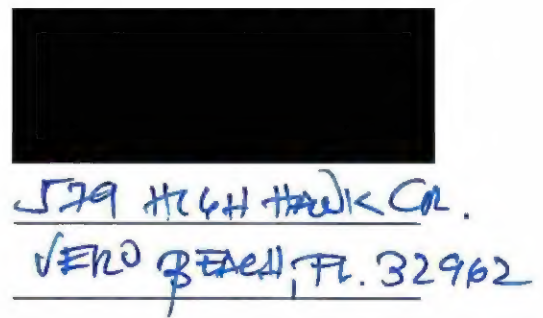 579 HIGH HAWK CIR.
VERO BEACH, FL. 32962